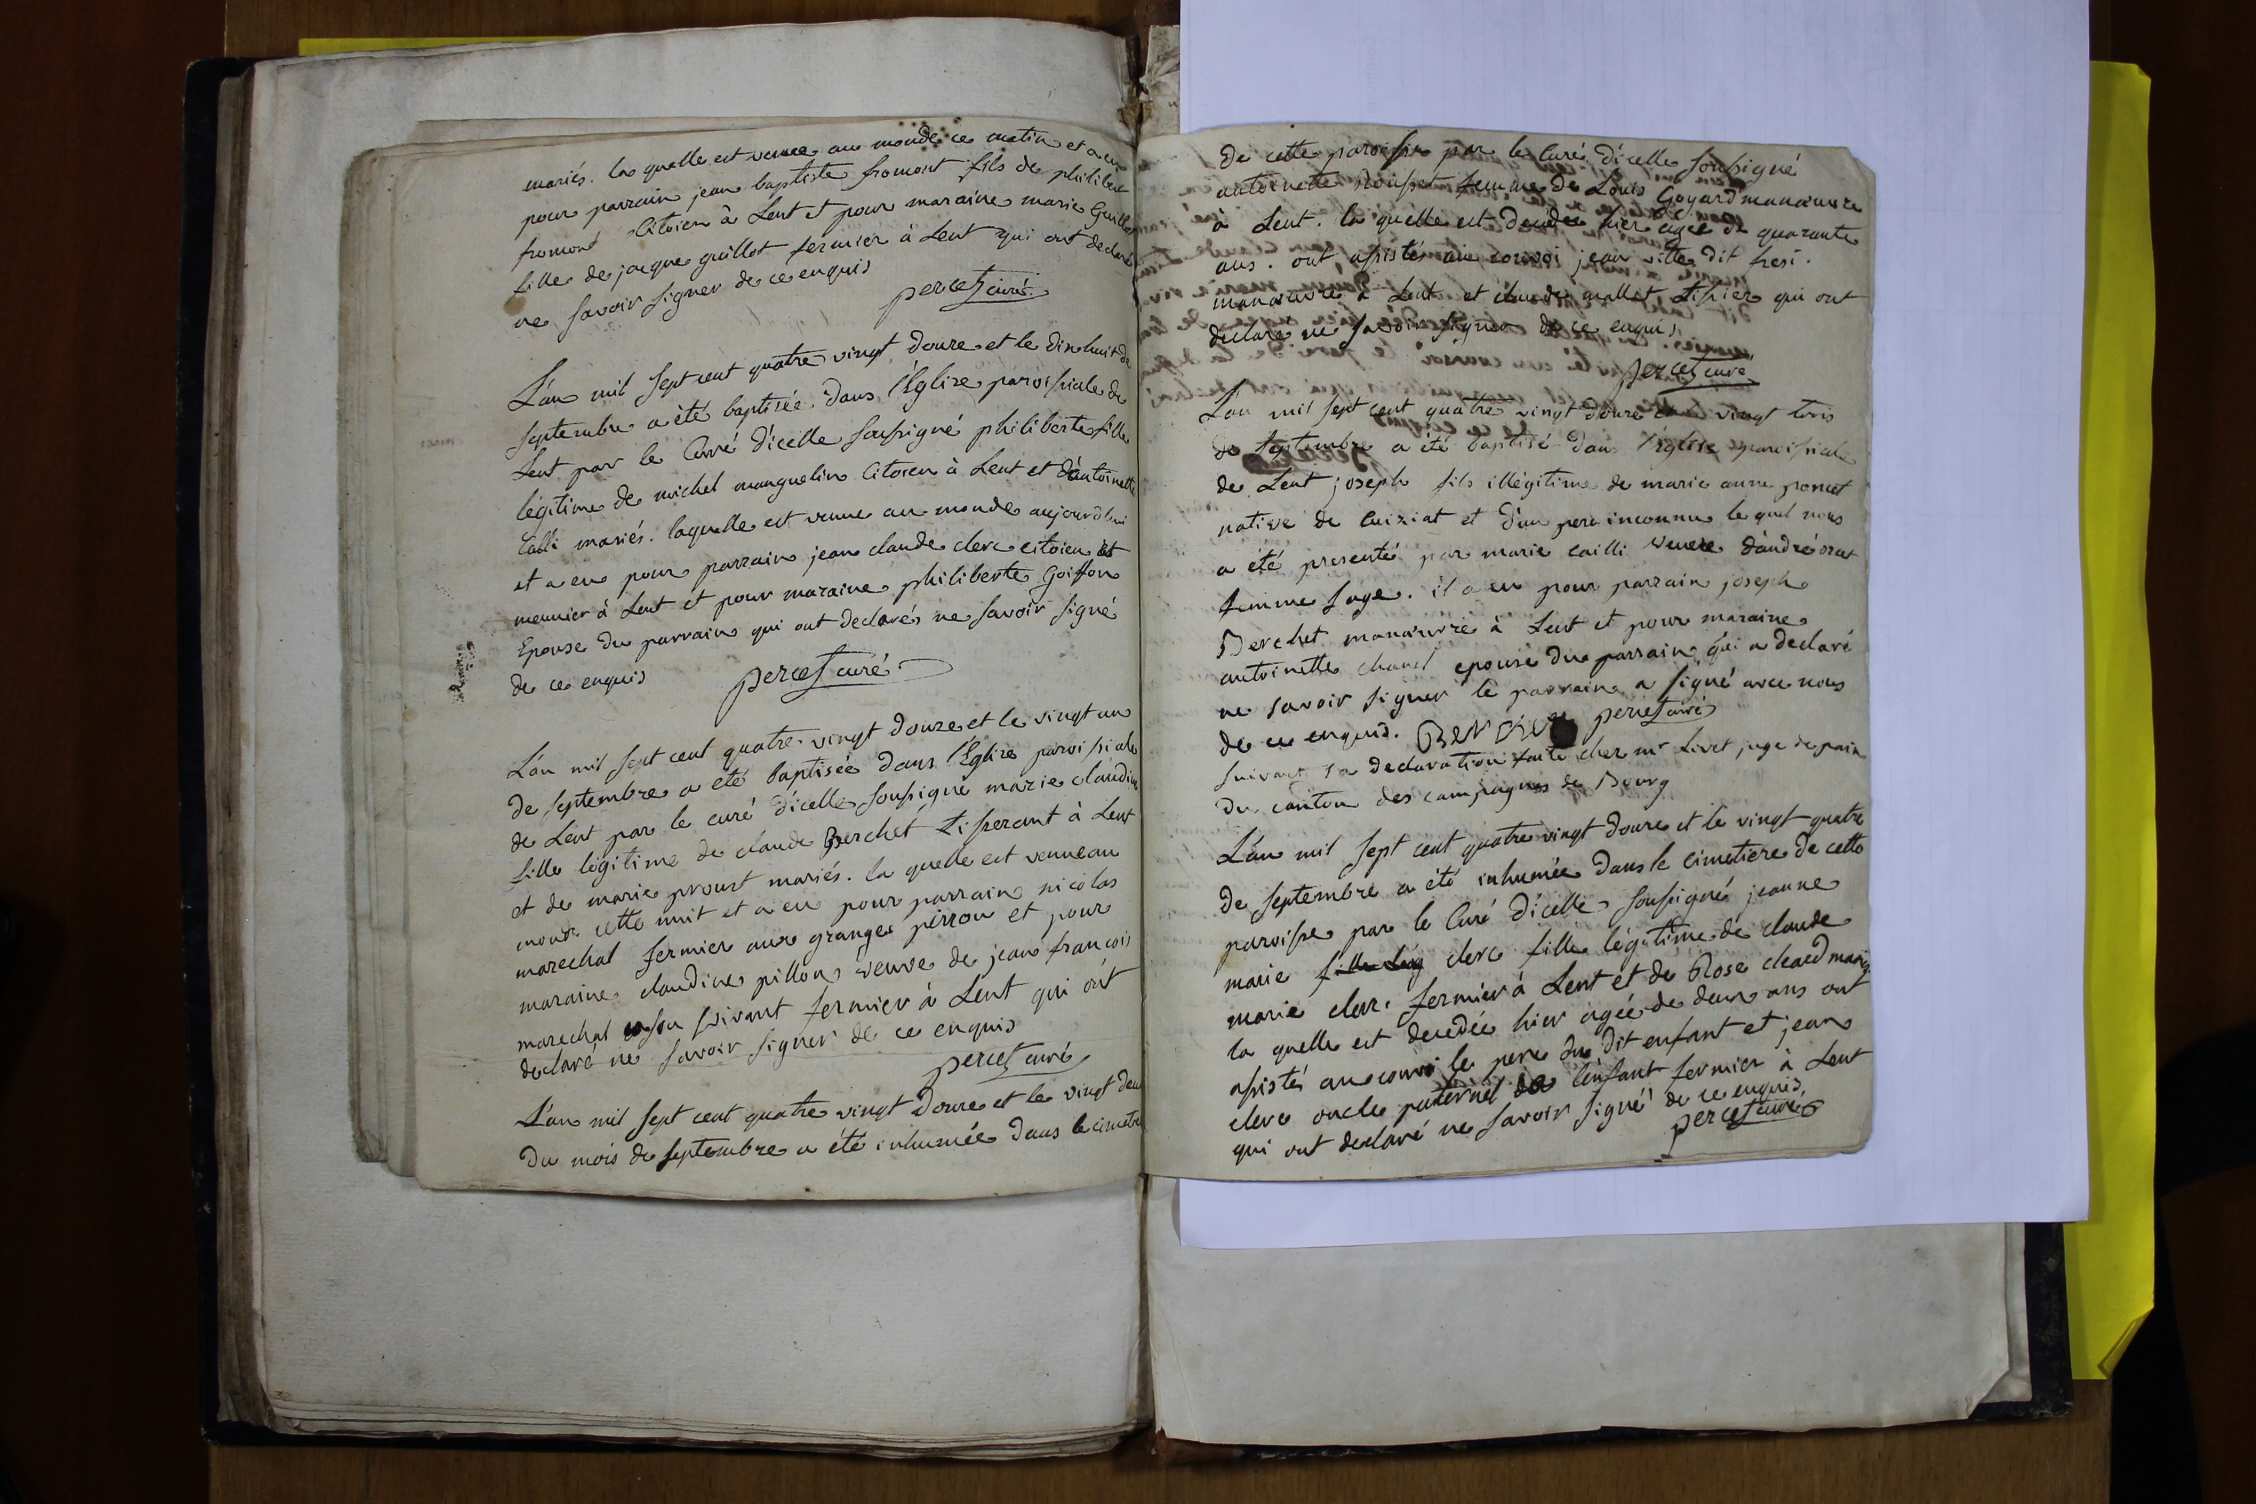 mariés. la quelle est venue au monde ce matin et a eu
pour parrain jean baptiste fromont fils de philibert
fromont Citoien à Lent et pour maraine marie Guillot
fille de jacque guillot fermier à Lent qui ont declaré
ne savoir signer de ce enquis
percet curé
L'an mil sept cent quatre vingt douze et le dix huit de
septembre a été baptisée dans l'Eglize paroissiale de
Lent par le Curé d'icelle soussigné philiberte fille
légitime de michel manguelin Citoien à Lent et d'antoinette
mariés. laquelle est venue au monde aujourd'hui
et a eu pour parrain jean claude clerc citoien et
meunier à Lent et pour maraine philiberte Goiffon
Epouse du parrain qui ont declarés ne savoir signé
de ce enquis percet curé
L'an mil sept cent quatre vingt douze et le vingt un
de septembre a été baptisée dans l'Eglize paroissiale
de Lent par le curé d'icelle soussigné marie claudine
fille légitime de claude Berchet tisserant à Lent
et de marie proust mariés. la quelle est venue au
monde cette nuit et a eu pour parrain nicolas
marechal fermier aux granges perrou et pour
maraine claudine pillon veuve de jean francois
marechal en son vivant fermier à Lent qui ont
declaré ne savoir signer de ce enquis
percet curé
L'an mil sept cent quatre vingt douze et le vingt deux
du mois de septembre a été inhumée dans le cimetiere
de cette paroisse par le Curé d'icelle soussigné
antoinette femme de Louis Goyard manœuvre
à Lent. la quelle est decedée hier agée de quarante
ans. ont assistés au convoi jean ville dit
manœuvre à Lent et claude mallet tissier qui ont
declaré ne savoir signer de ce enquis
percet curé
L'an mil sept cent quatre vingt douze et vingt trois
de septembre a été baptisé dans l'Eglise paroissiale
de Lent joseph fils illégitime de marie anne poncet
native de Cuiziat et d'un pere inconnu le quel nous
a été presenté par marie cailli veuve d'andré
femme sage. il a eu pour parrain joseph
Berchet manœuvre à Lent et pour maraine
antoinette chanel epouse du parrain qui a declaré
ne savoir signer le parrain a signé avec nous
de ce enquis. percet curé
suivant sa declaration faite chez mr Livet juge de paix
du canton des campagnes de Bourg
L'an mil sept cent quatre vingt douze et le vingt quatre
de septembre a été inhumée dans le cimetiere de cette
paroisse par le Curé d'icelle soussigné jeanne
marie clerc fille légitime de claude
marie clerc fermier à Lent et de Rose cleard mariés
la quelle est decedée hier agée de deux ans ont
assistés au convoi le pere du dit enfant et jean
clerc oncle paternel de l'enfant fermier à Lent
qui ont declaré ne savoir signé de ce enquis
percet curé